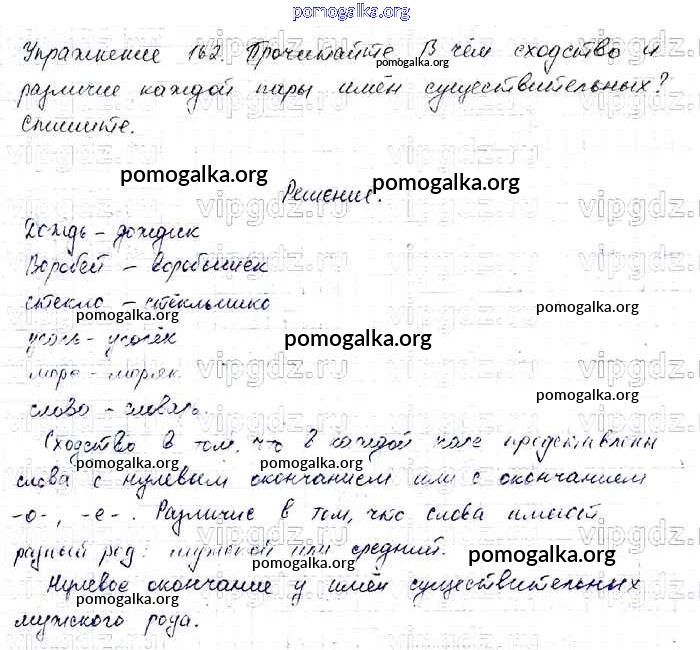 pomogalka.org
Упражнение 162. Прочитайте. В чём сходство и
pomogalka.org
различие каждой пары имён существительных?
Спишите.
pomogalka.org
Решение.
pomogalka.org
Дождь - дождик
Воробей - воробышек
стекло - стёклышко
pomogalka.org
pomogalka.org
pomogalka.org
море - моряк
pomogalka.org
слово - словарь.
Сходство в том, что в каждой паре представлены
pomogalka.org
pomogalka.org
pomogalka.org
слова с нулевым окончанием или с окончанием
-о-, -е-. Различие в том, что слова имеют
pomogalka.org
разный род: мужской или средний.
pomogalka.org
Нулевое окончание у имён существительных
pomogalka.org
pomogalka.org
мужского рода.
vipgdz.ru